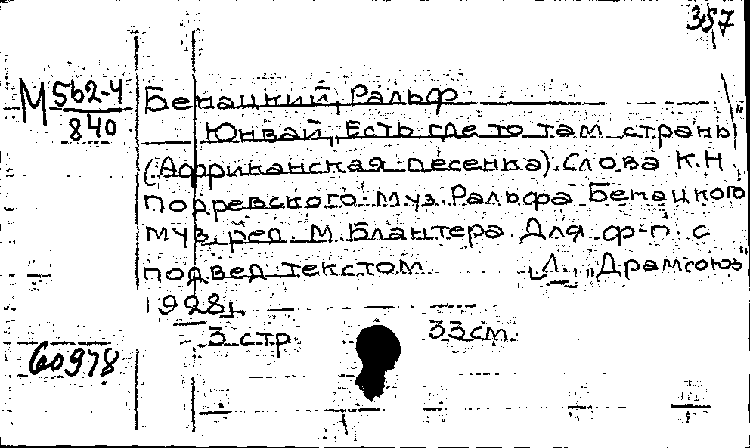 357
М 562-4
840
Бенацкий, Ральф
Юквай, Есть где то там страны
(Африканская песенка). Слова К.Н.
Подревского. Муз. Ральфа Бенацкого
муз. ред. М. Блантера. Для ф-п. с
подвед. текстом. Л., "Драмсоюз"
1928 г.
3 стр. 33 см.
60978